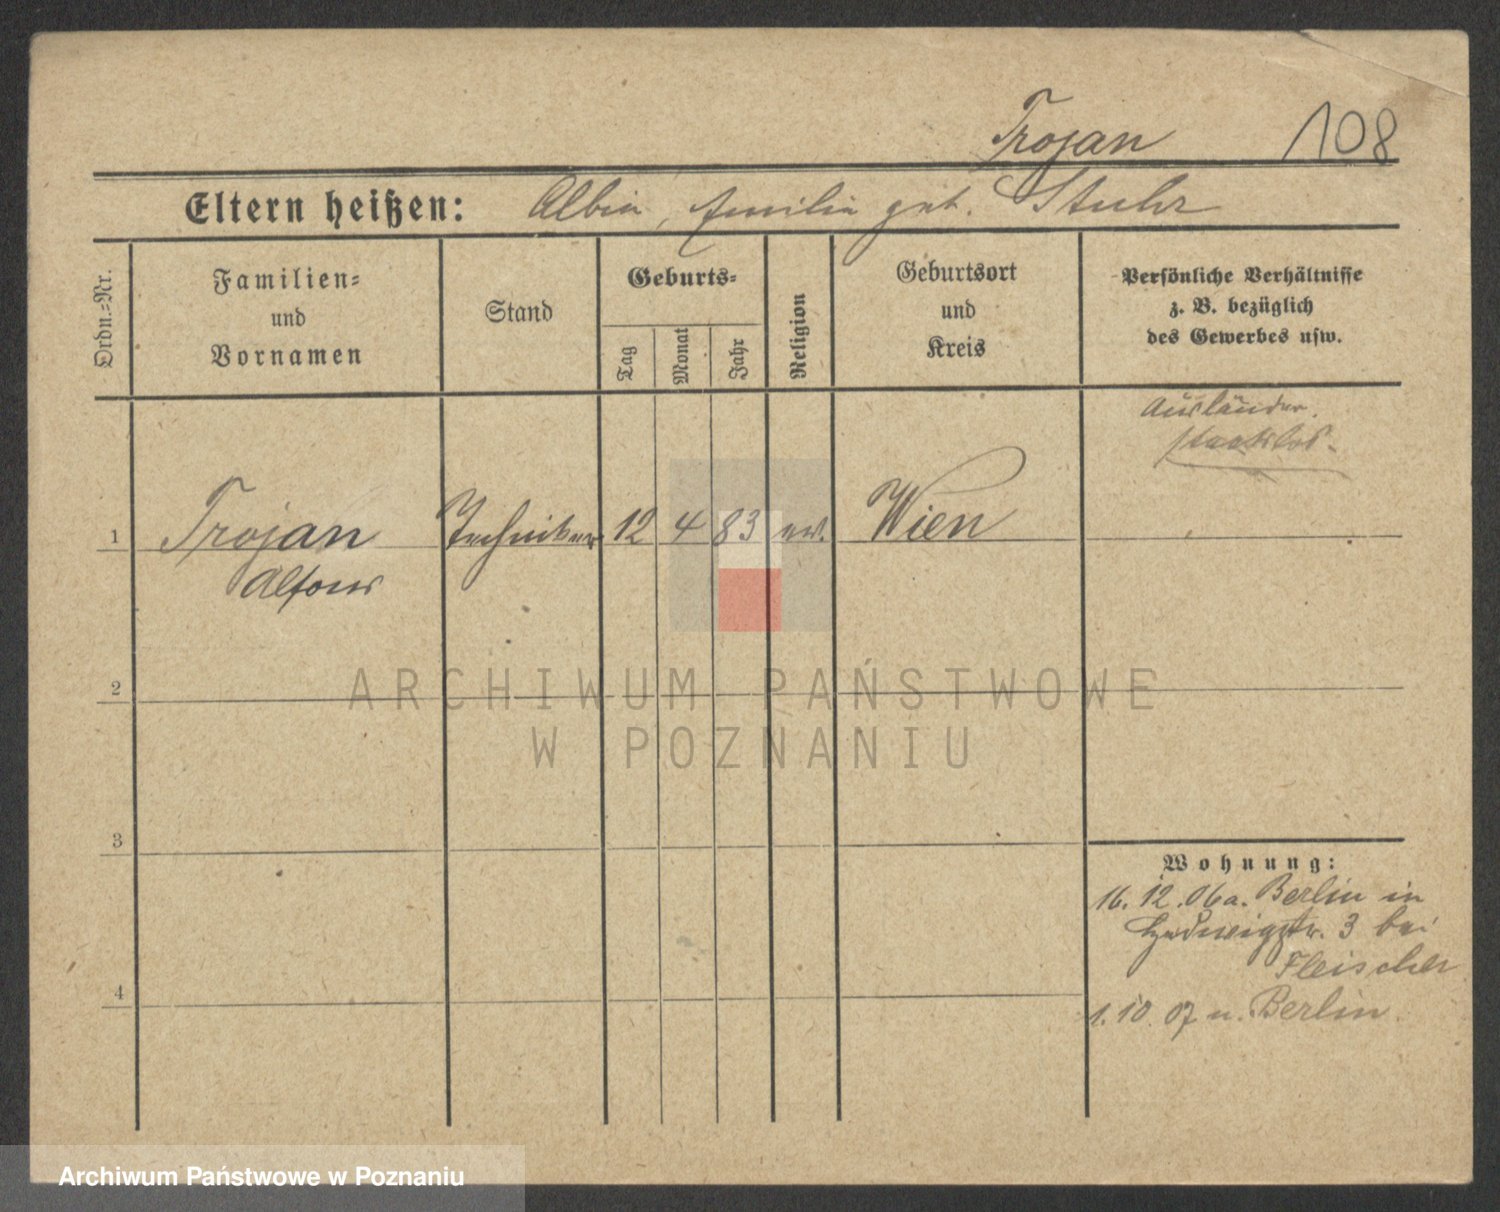 Trojan 108
Eltern heißen: Albin, Emilie geb. Stuhr
Ordn.=Nr.
Familien=
und
Vornamen
Stand
Geburts=
Tag
Monat
Jahr
Religion
Geburtsort
und
Kreis
Persönliche Verhältnisse
z. B. bezüglich
des Gewerbes usw.
Ausländer.
staatslos.
1 Trojan Techniker 12 4 83 ev. Wien
Alfons
2
ARCHIWUM PAŃSTWOWE
W POZNANIU
3
Wohnung:
16. 12. 06 a. Berlin in
Hedwigstr. 3 bei
Fleischer
4
1. 10. 07 n. Berlin.
Archiwum Państwowe w Poznaniu